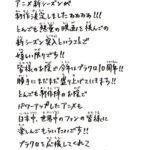 アニメ新シーズンが
制作決定しましたぁぁぁぁ!!!
とんでも熱量の映画を挟んでの
新シーズン突入ということで
嬉しい限りです!!
皆様のお陰で今年はブラクロ10周年!!
勝手にまだまだ盛り上がてます!!
とんでも制作陣のお陰で
パワーアップしたアニメも
日本中、世界中のファンの皆様に
楽しんでもらいたいです!!
ブラクロを応援してくれて